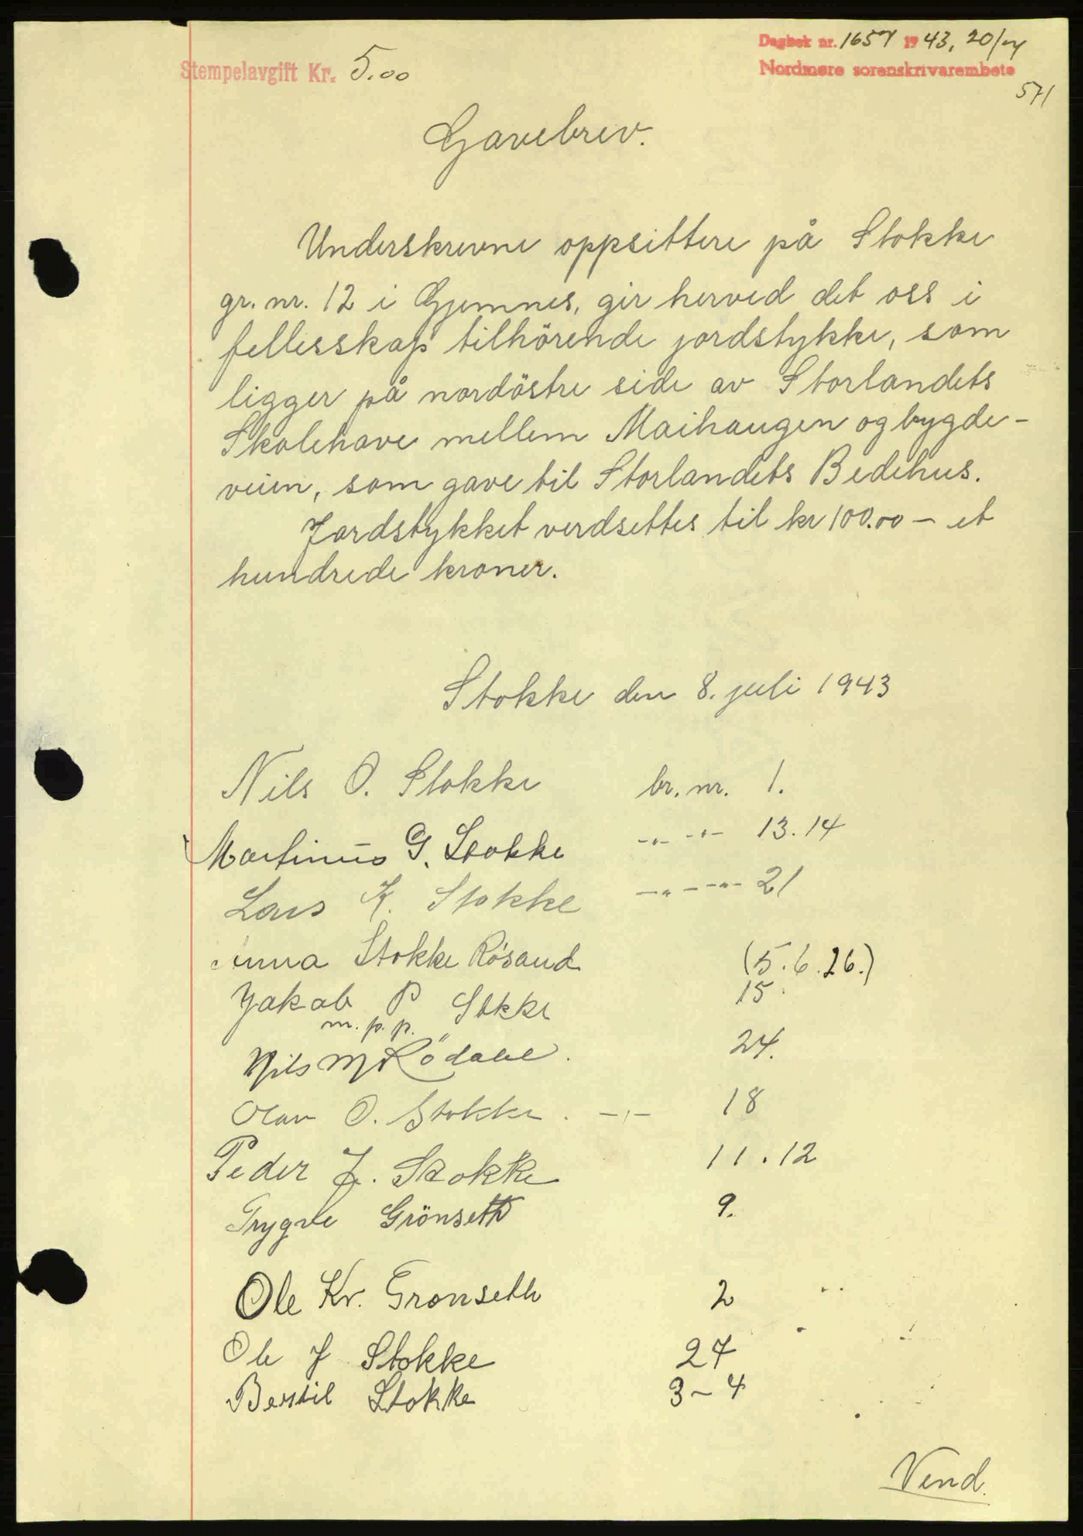 Stempelavgift Kr. 5.00
Dagbok nr. 1657 1943, 20/7
Nordmøre sorenskrivarembete
571
Gavebrev.
Underskrevne oppsittere på Stokke
gr. nr. 12 i Gjemnes, gir herved det oss i
fellesskap tilhörende jordstykke, som
ligger på nordöstre side av Storlandets
Skolehave mellem Maihaugen og bygde-
veien, som gave til Storlandets Bedehus.
Jordstykket verdsettes til kr 100.00 – et
hundrede kroner.
Stokke den 8. juli 1943
Nils O. Stokke br. nr. 1.
Martinus G. Stokke -„- -„- 13.14
Lars K. Stokke -„- --- 21
Anna Stokke Rösand (5.6.26.)
Jakob P Stokke 15.
m. p. p.
Nils M Rödahl. 24.
Olav O. Stokke. -„- 18
Peder J. Stokke 11.12
Trygve Grönseth 9.
Ole Kr. Gronseth 2
Ole J Stokke 27
Bertil Stokke 3-4
Vend.